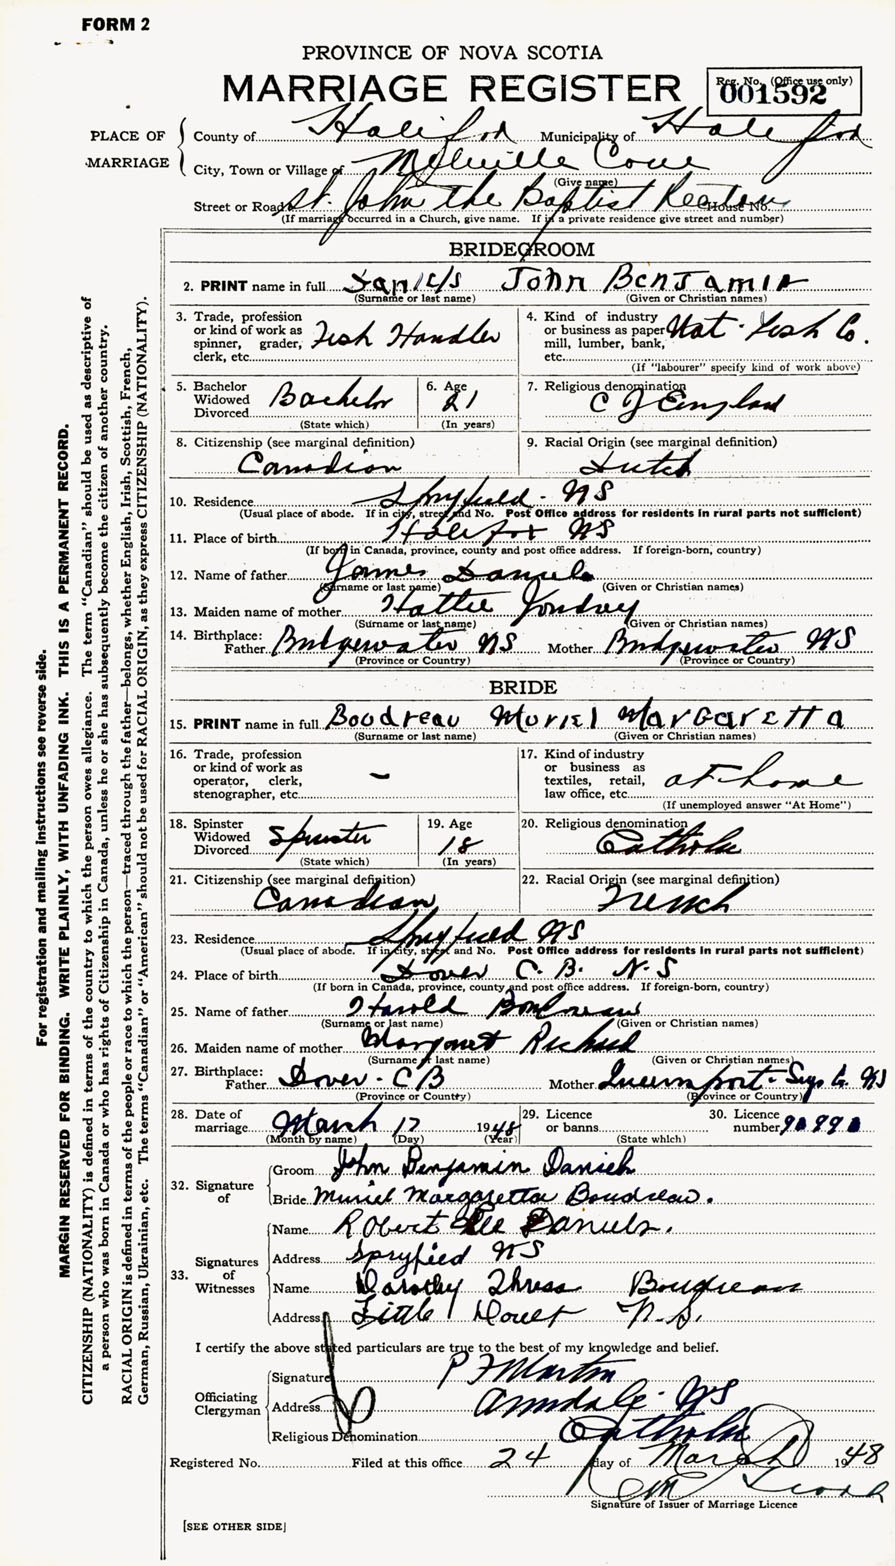 FORM 2
PROVINCE OF NOVA SCOTIA
MARRIAGE REGISTER
Reg. No. (Office use only)
001592
PLACE OF MARRIAGE
County of Halifax Municipality of Halifax
City, Town or Village of Melville Cove
(Give name)
Street or Road St. John the Baptist House No.
(If marriage occurred in a Church, give name. If in a private residence give street and number)
BRIDEGROOM
2. PRINT name in full Daniels John Benjamin
(Surname or last name) (Given or Christian names)
3. Trade, profession or kind of work as spinner, grader, clerk, etc. Fish Handler
4. Kind of industry or business as paper mill, lumber, bank, etc. Nat. Fish Co.
(If "labourer" specify kind of work above)
5. Bachelor Widowed Divorced Bachelor
(State which)
6. Age 21
(In years)
7. Religious denomination C of England
8. Citizenship (see marginal definition)
Canadian
9. Racial Origin (see marginal definition)
Dutch
10. Residence Spryfield - NS
(Usual place of abode. If in city, street and No. Post Office address for residents in rural parts not sufficient)
11. Place of birth Halifax NS
(If born in Canada, province, county and post office address. If foreign-born, country)
12. Name of father James Daniels
(Surname or last name) (Given or Christian names)
13. Maiden name of mother Hattie
(Surname or last name) (Given or Christian names)
14. Birthplace: Father Bridgewater NS Mother Bridgewater NS
(Province or Country) (Province or Country)
BRIDE
15. PRINT name in full Boudreau Muriel Margaretta
(Surname or last name) (Given or Christian names)
16. Trade, profession or kind of work as operator, clerk, stenographer, etc. -
17. Kind of industry or business as textiles, retail, law office, etc. at home
(If unemployed answer "At Home")
18. Spinster Widowed Divorced Spinster
(State which)
19. Age 18
(In years)
20. Religious denomination
Catholic
21. Citizenship (see marginal definition)
Canadian
22. Racial Origin (see marginal definition)
French
23. Residence Spryfield NS
(Usual place of abode. If in city, street and No. Post Office address for residents in rural parts not sufficient)
24. Place of birth Dover C.B. N.S
(If born in Canada, province, county and post office address. If foreign-born, country)
25. Name of father Harold Boudreau
(Surname or last name) (Given or Christian names)
26. Maiden name of mother Margaret Richard
(Surname or last name) (Given or Christian names)
27. Birthplace: Father Dover - CB Mother NS
(Province or Country) (Province or Country)
28. Date of marriage March 17 1948
(Month by name) (Day) (Year)
29. Licence or banns
(State which)
30. Licence number
32. Signature of
Groom John Benjamin Daniels
Bride Muriel Margaretta Boudreau.
33. Signatures of Witnesses
Name Robert Lee Daniels.
Address Spryfied NS
Name Dorothy Boudreau
Address Little Dover N.S.
I certify the above stated particulars are true to the best of my knowledge and belief.
Officiating Clergyman
Signature P F Martin
Address Armdale - NS
Religious Denomination Catholic
Registered No. Filed at this office 24 day of March 1948
Signature of Issuer of Marriage Licence
[SEE OTHER SIDE]
For registration and mailing instructions see reverse side.
MARGIN RESERVED FOR BINDING. WRITE PLAINLY, WITH UNFADING INK. THIS IS A PERMANENT RECORD.
CITIZENSHIP (NATIONALITY) is defined in terms of the country to which the person owes allegiance. The term "Canadian" should be used as descriptive of
a person who was born in Canada or who has rights of Citizenship in Canada, unless he or she has subsequently become the citizen of another country.
RACIAL ORIGIN is defined in terms of the people or race to which the person—traced through the father—belongs, whether English, Irish, Scottish, French,
German, Russian, Ukrainian, etc. The terms "Canadian" or "American" should not be used for RACIAL ORIGIN, as they express CITIZENSHIP (NATIONALITY).